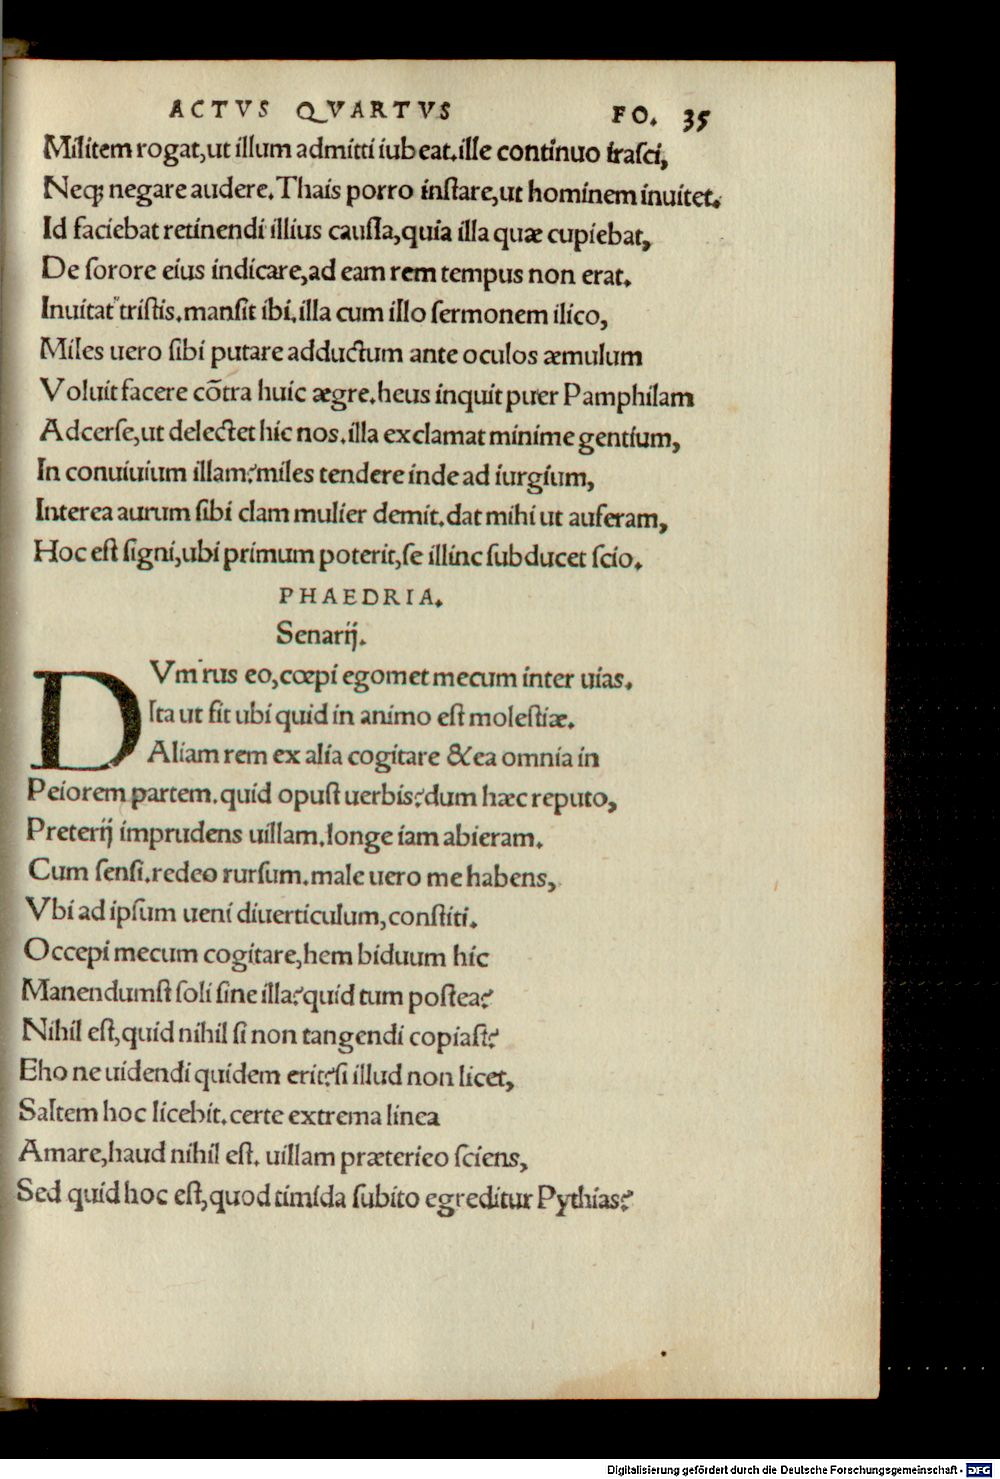 ACTVS QVARTVS FO. 35
Militem rogat,ut illum admitti iubeat.ille continuo irasci,
Neq; negare audere.Thais porro instare,ut hominem inuitet.
Id faciebat retinendi illius caussa,quia illa quæ cupiebat,
De sorore eius indicare,ad eam rem tempus non erat.
Inuitat tristis.mansit ibi.illa cum illo sermonem ilico,
Miles uero sibi putare adductum ante oculos æmulum
Voluit facere cõtra huic ægre.heus inquit puer Pamphilam
Adcerse,ut delectet hic nos.illa exclamat minime gentium,
In conuiuium illam?miles tendere inde ad iurgium,
Interea aurum sibi clam mulier demit.dat mihi ut auferam,
Hoc est signi,ubi primum poterit,se illinc subducet scio.
PHAEDRIA.
Senarij.
DVm rus eo,cœpi egomet mecum inter uias.
Ita ut fit ubi quid in animo est molestiæ.
Aliam rem ex alia cogitare &ea omnia in
Peiorem partem.quid opust uerbis?dum hæc reputo,
Preterij imprudens uillam.longe iam abieram.
Cum sensi.redeo rursum.male uero me habens,
Vbi ad ipsum ueni diuerticulum,constiti.
Occepi mecum cogitare,hem biduum hic
Manendumst soli sine illa?quid tum postea?
Nihil est,quid nihil si non tangendi copiast?
Eho ne uidendi quidem erit?si illud non licet,
Saltem hoc licebit.certe extrema linea
Amare,haud nihil est. uillam præterieo sciens,
Sed quid hoc est,quod timida subito egreditur Pythias?
Digitalisierung gefördert durch die Deutsche Forschungsgemeinschaft - DFG